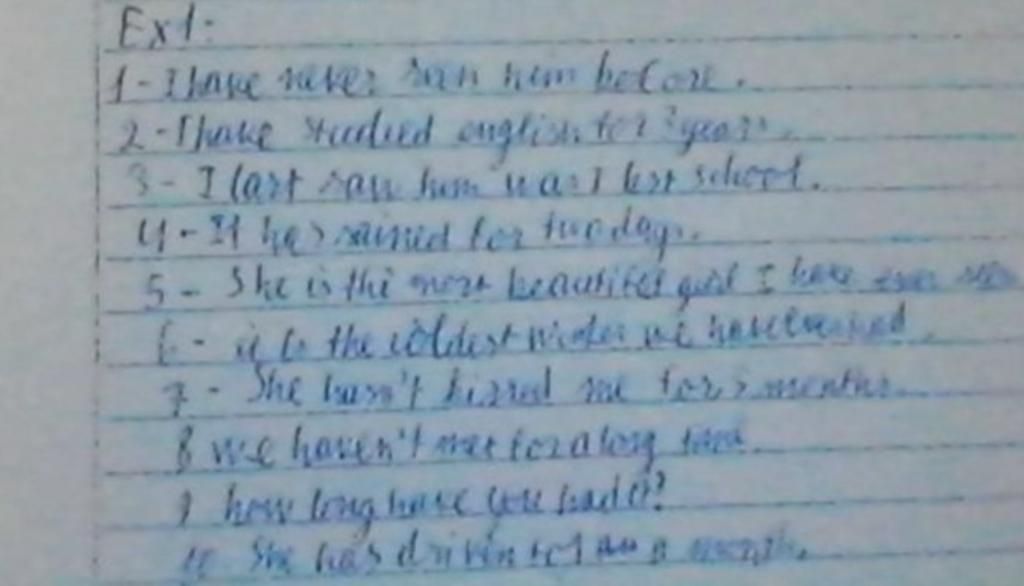 Ex1:
1 - I have never seen him before.
2 - I have studied english for 3 years.
3 - I last saw him was I left school.
4 - It has rained for two days.
5 - She is the most beautiful girl I have ever seen
6 - it is the coldest winter we have
7 - She hasn't kissed me for 5 months.
8 we haven't met for a long time
9 how long have you had it?
10 She has driven for a month.